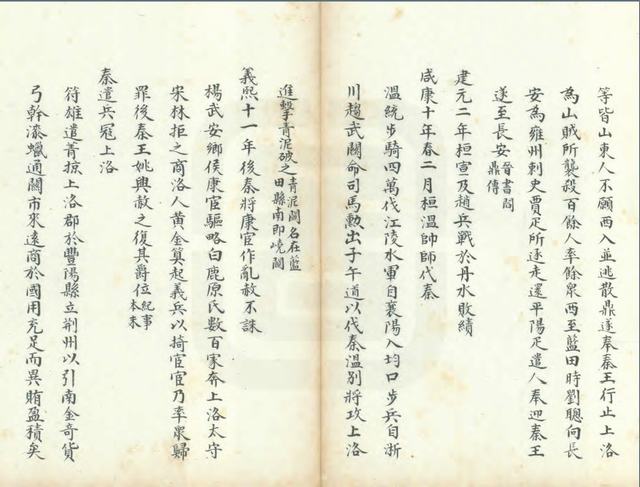 等皆山東人不願西入並逃散鼎遂奉秦王行止上洛
為山賊所襲殺百餘人率餘衆西至藍田時劉聰向長
安為雍州刺史賈疋所逐走還平陽疋遣人奉迎秦王
遂至長安晉書閻鼎傳
建元二年桓宣及趙兵戰於丹水敗績
咸康十年春二月桓溫帥師伐秦
溫統步騎四萬伐江陵水軍自襄陽入均口步兵自淅
川趨武關命司馬勲出子午道以伐秦溫別將攻上洛
進擊青泥破之青泥關名在藍田縣南即嶢關
義熙十一年後秦將康宦作亂赦不誅
楊武安鄉侯康宦驅略白鹿原氏數百家奔上洛太守
宋林拒之商洛人黃金等起義兵以掎宦宦乃率衆歸
罪後秦王姚興赦之復其爵位紀事本末
秦遣兵寇上洛
符雄遣菁掠上洛郡於豐陽縣立荊州以引南金奇貨
弓幹漆蠟通關市來遠商於國用充足而異賄盈積矣